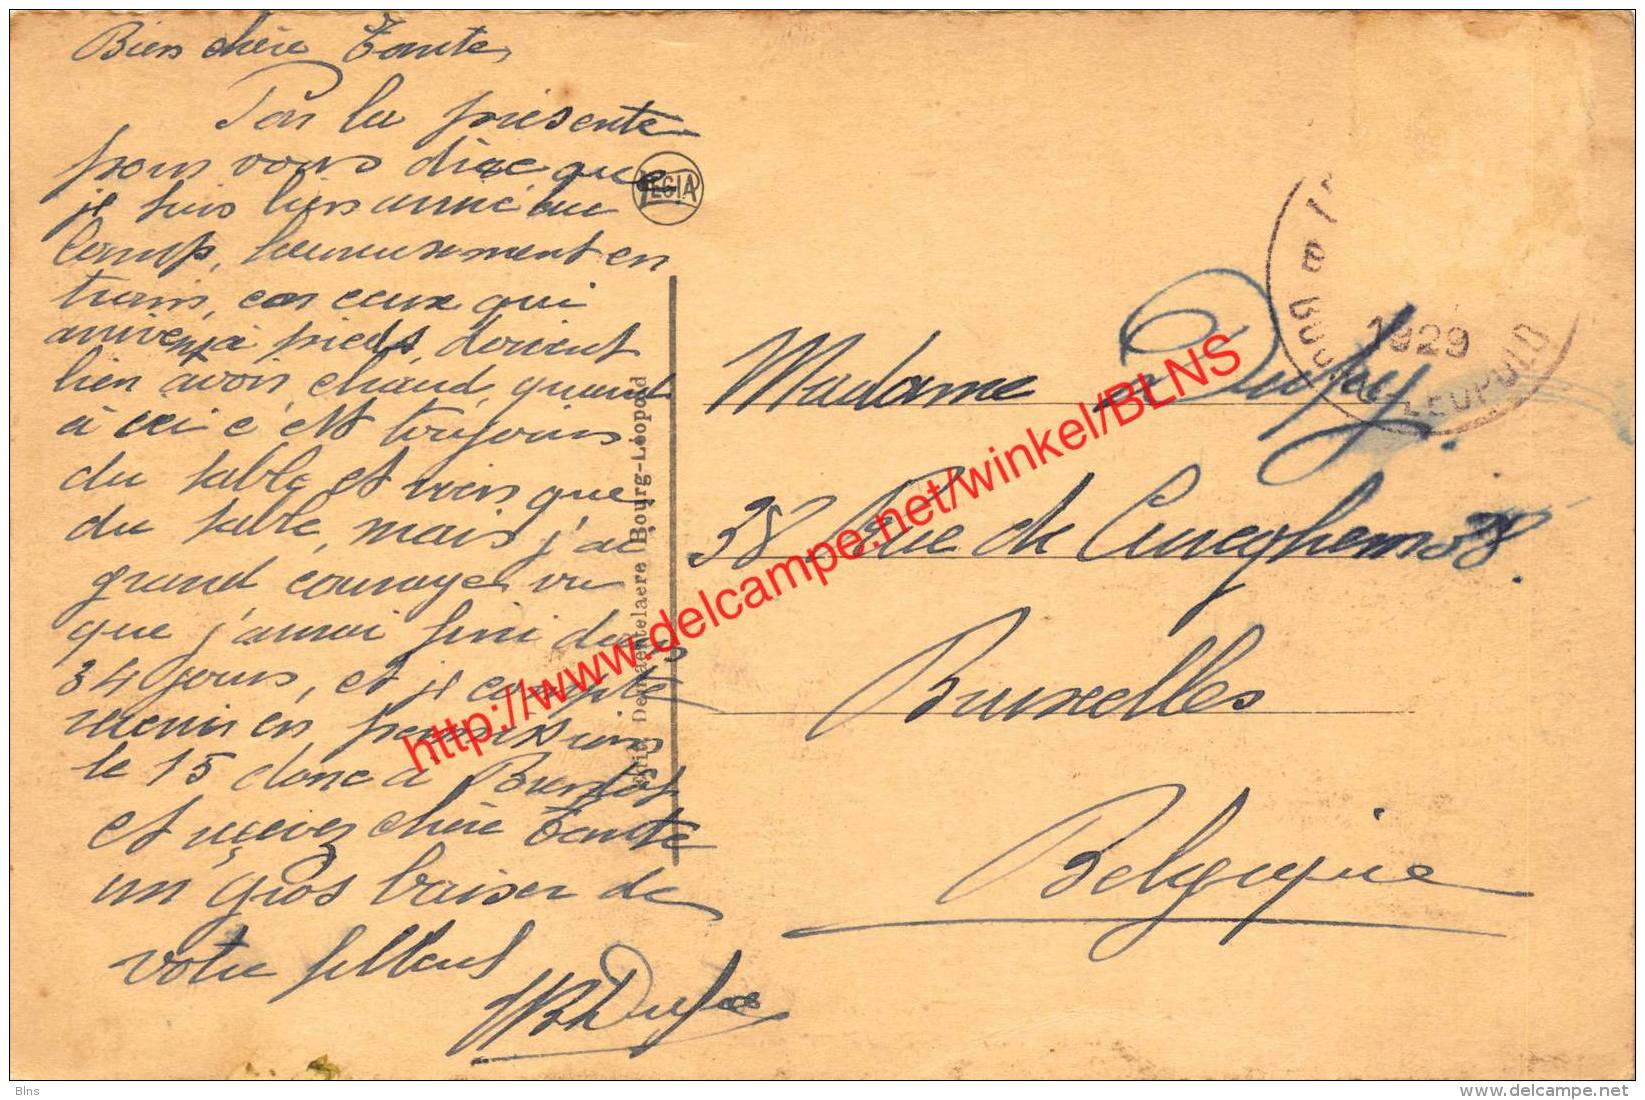 Bien chère Tante,
Par la présente
pour vous dire que
je suis bien arrivé au
camp, heureusement en
train, car ceux qui
arrivent à pieds, doivent
bien avoir chaud, quand
à ici c'est toujours
du sable et rien que
du sable, mais j'ai
grand courage vu
que j'aurai fini dans
34 jours, et je compte
revenir en permission
le 15 donc à Bientôt
et recevez chère Tante
un gros baiser de
votre filleul
Dufoe
LEGIA
Edit. Bourg-Léopold
BOURG
LEOPOLD
1929
Madame Dufoy.
38 Rue de Cureghem 38.
Bruxelles
Belgique
http://www.delcampe.net/winkel/BLNS
Blns
www.delcampe.net